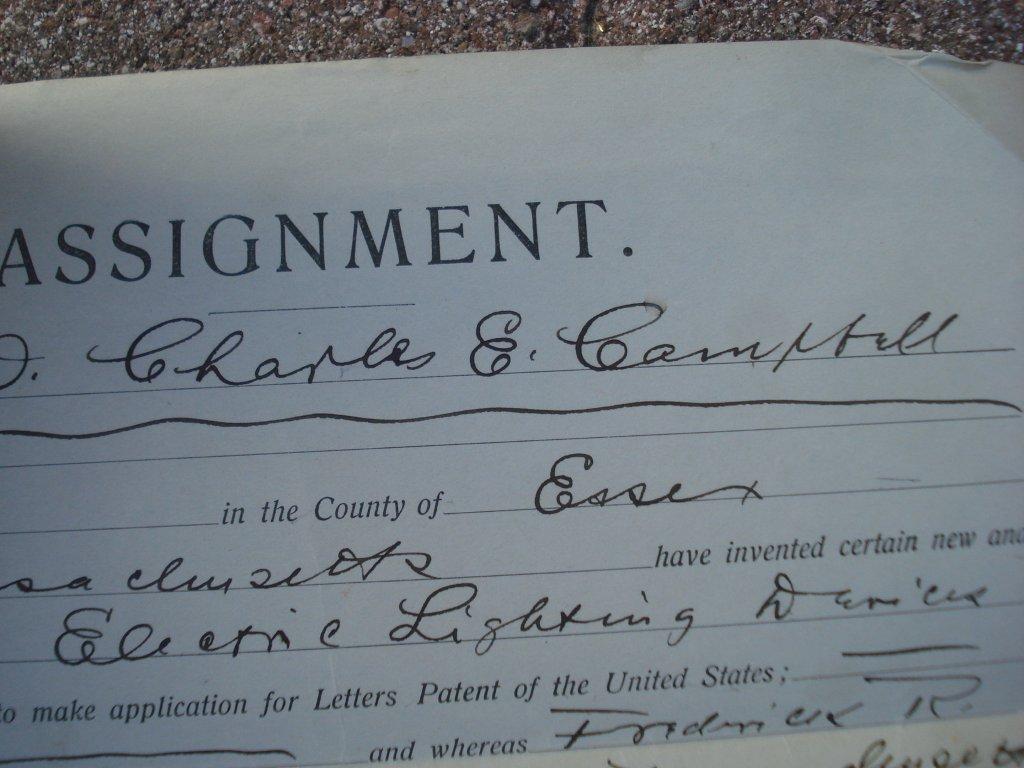 ASSIGNMENT.
Charles E. Campbell
in the County of Essex
sachusetts have invented certain new and
Electric Lighting Devices
to make application for Letters Patent of the United States;
and whereas Frederick R.